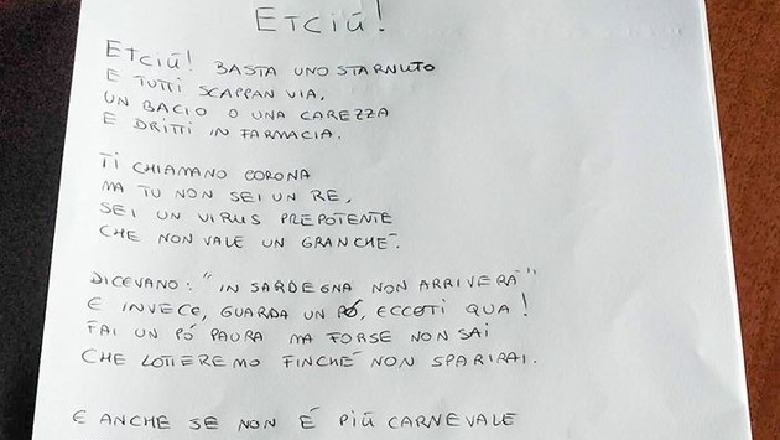 ETCIÚ!
ETCIÚ! BASTA UNO STARNUTO
E TUTTI SCAPPAN VIA.
UN BACIO O UNA CAREZZA
E DRITTI IN FARMACIA.
TI CHIAMANO CORONA
MA TU NON SEI UN RE,
SEI UN VIRUS PREPOTENTE
CHE NON VALE UN GRANCHÉ.
DICEVANO: "IN SARDEGNA NON ARRIVERÁ"
E INVECE, GUARDA UN PÓ, ECCOTI QUA!
FAI UN PÓ PAURA MA FORSE NON SAI
CHE LOTTEREMO FINCHÉ NON SPARIRAI.
E ANCHE SE NON É PIÚ CARNEVALE